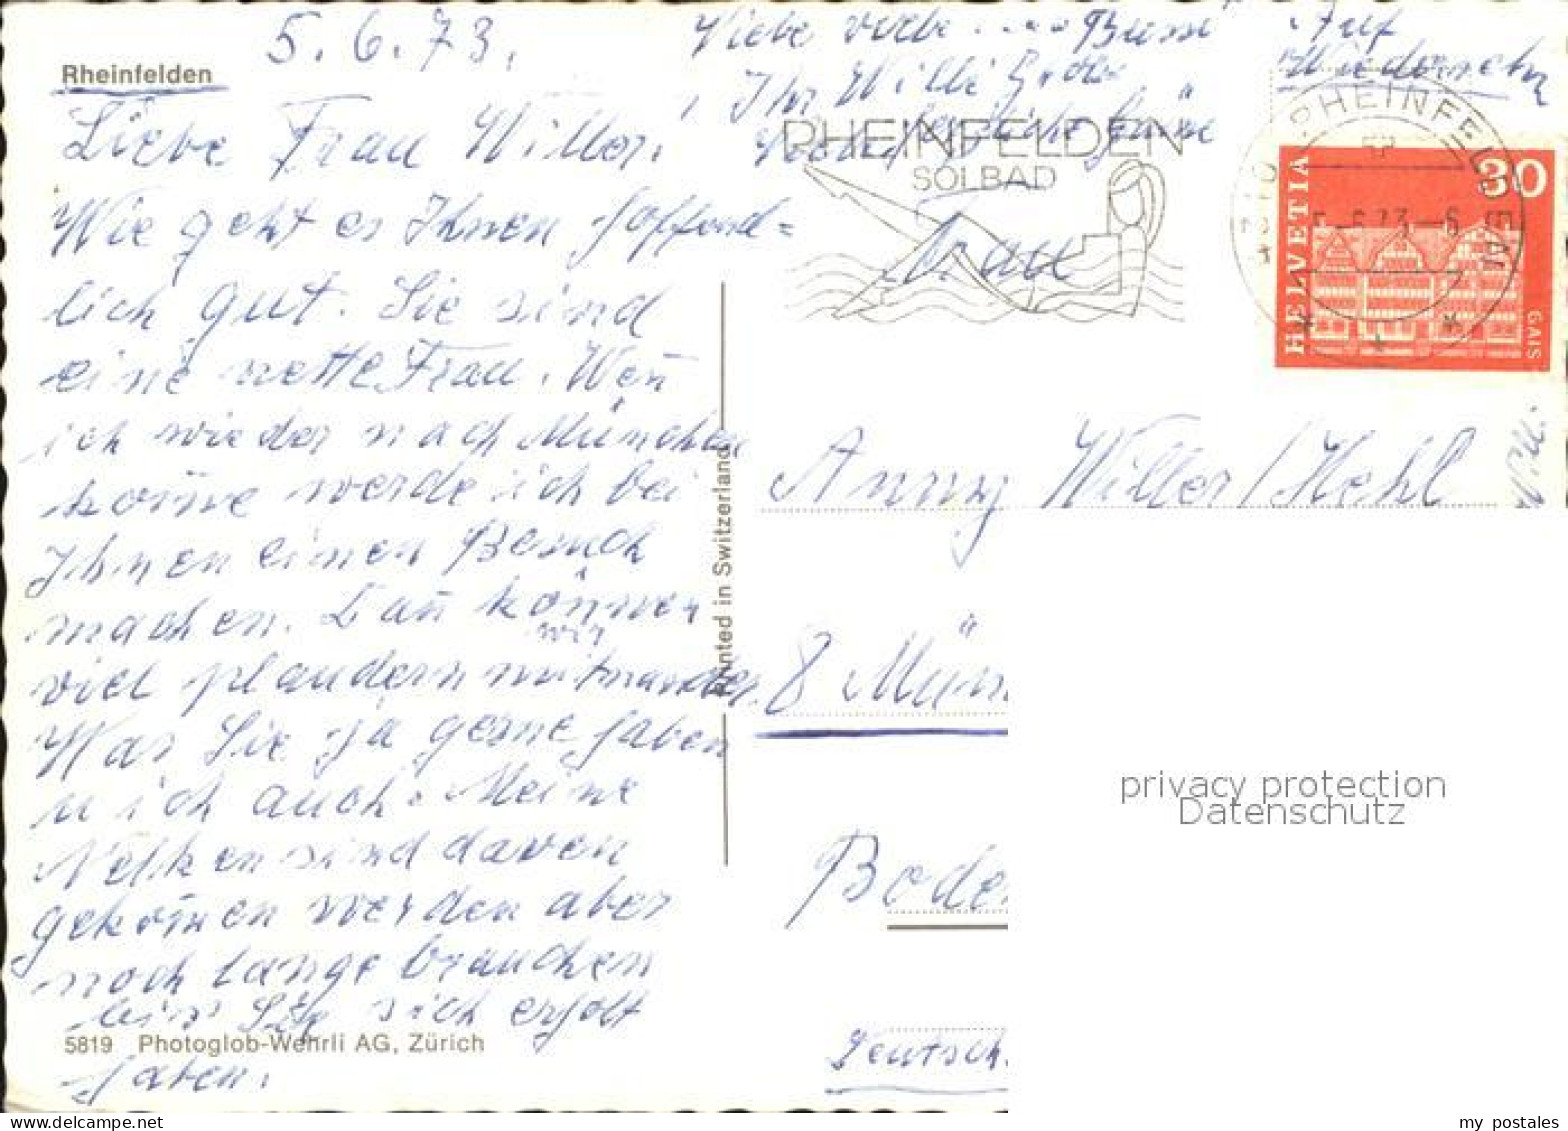 5.6.73.
Rheinfelden
Liebe Frau Willer,
Wie geht es Ihnen hoffend=
lich gut. Sie sind
eine nette Frau. Wen̄
ich wieder nach München
kom̄e werde ich bei
Ihnen einen Besuch
machen. Dan̄ können
wir
viel plaudern miteinander.
Was Sie ja gerne haben
u ich auch. Meine
Nelken sind davon
gekom̄en werden aber
noch lange brauchen
bis Sie sich erholt
5819 Photoglob-Wehrli AG, Zürich
haben.
Printed in Switzerland
Liebe viele .... Busse
Ihr Willi
Frau
Auf
Wiedersehn
RHEINFELDEN
SOLBAD
4310 RHEINFELDEN
5.-6.73.-6
HELVETIA
30
GAIS
Anny Willer/Hehl
8 Mün
Bode
Deutsch.
privacy protection
Datenschutz
my postales